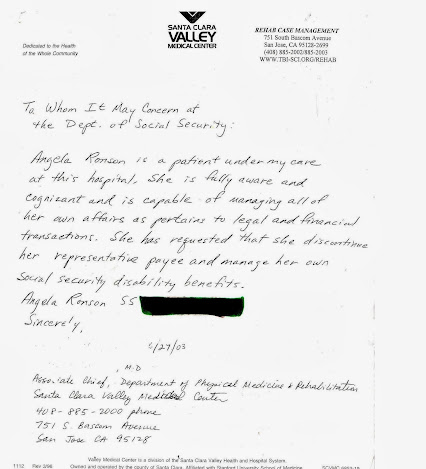 SANTA CLARA
VALLEY
MEDICAL CENTER
Dedicated to the Health
of the Whole Community
REHAB CASE MANAGEMENT
751 South Bascom Avenue
San Jose, CA 95128-2699
(408) 885-2002/885-2003
WWW.TBI-SCI.ORG/REHAB
To Whom It May Concern at
the Dept. of Social Security:
Angela Ronson is a patient under my care
at this hospital. She is fully aware and
cognizant and is capable of managing all of
her own affairs as pertains to legal and financial
transactions. She has requested that she discontinue
her representative payee and manage her own
Social security disability benefits.
Angela Ronson SS
Sincerely,
6/27/03
M.D
Associate Chief, Department of Physical Medicine & Rehabilitation
Santa Clara Valley Medical Center
408-885-2000 phone
751 S. Bascom Avenue
San Jose CA 95128
Valley Medical Center is a division of the Santa Clara Valley Health and Hospital System.
1112 Rev 2/96 Owned and operated by the county of Santa Clara. Affiliated with Stanford University School of Medicine.